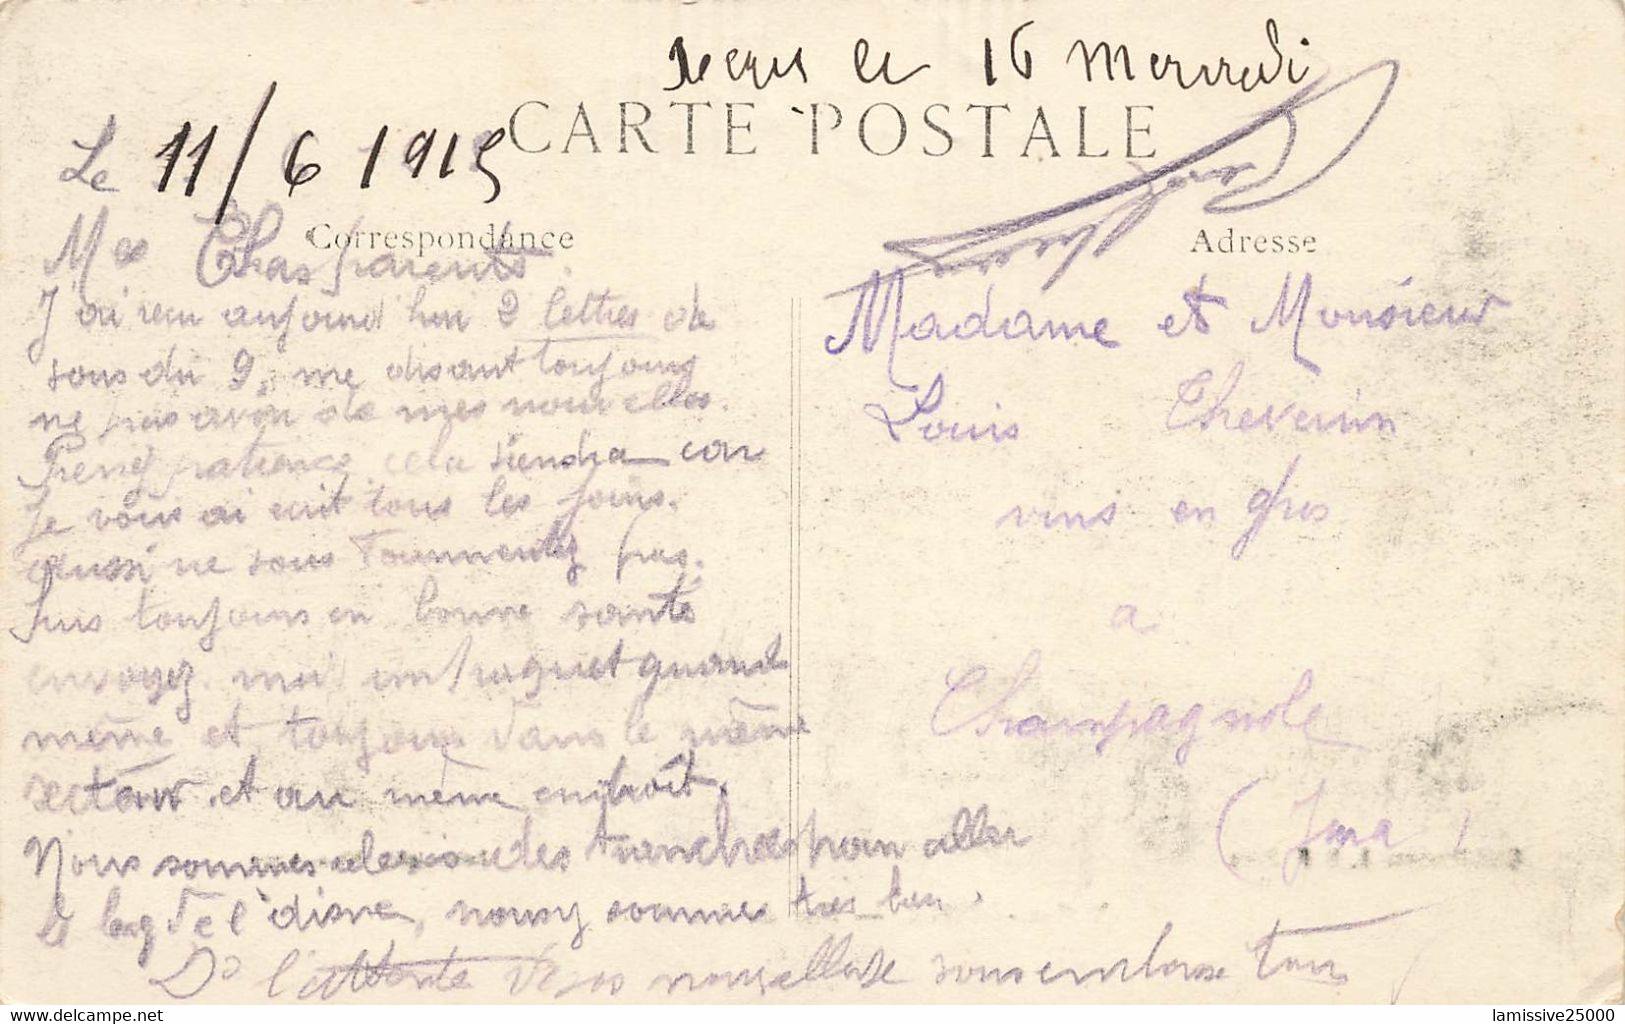 Reçu le 16 Mercredi
CARTE POSTALE
Le 11/6 1915
Correspondance
Adresse
Mes Chers parents
J'ai reçu aujourd'hui 2 lettres de
vous du 9, me disant toujours
ne pas avoir de mes nouvelles.
Prenez patience cela viendra car
Je vous ai écrit tous les jours.
aussi ne vous Tourmentez pas.
Suis toujours en bonne santé
envoyez moi un paquet quand
même et toujours dans le même
secteur et au même endroit.
Nous sommes des tranchées pour aller
le long de l'aisne, nous y sommes très bien.
De l'attente de vos nouvelles je vous embrasse tous
Madame et Monsieur
Louis Thevenin
vins en gros
a
Champagnole
(Jura)
lamissive25000